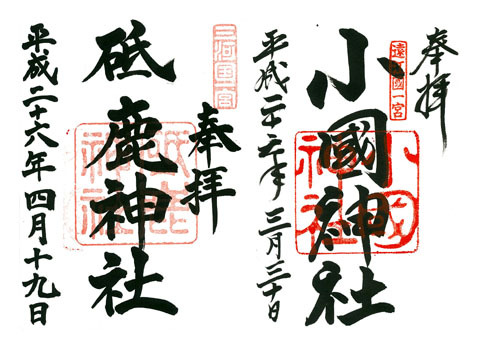 奉拝
遠江國一宮
小國神社
小國神社
平成二十六年三月三十日
三河國一宮
奉拝
砥鹿神社
砥鹿神社
平成二十六年四月十九日